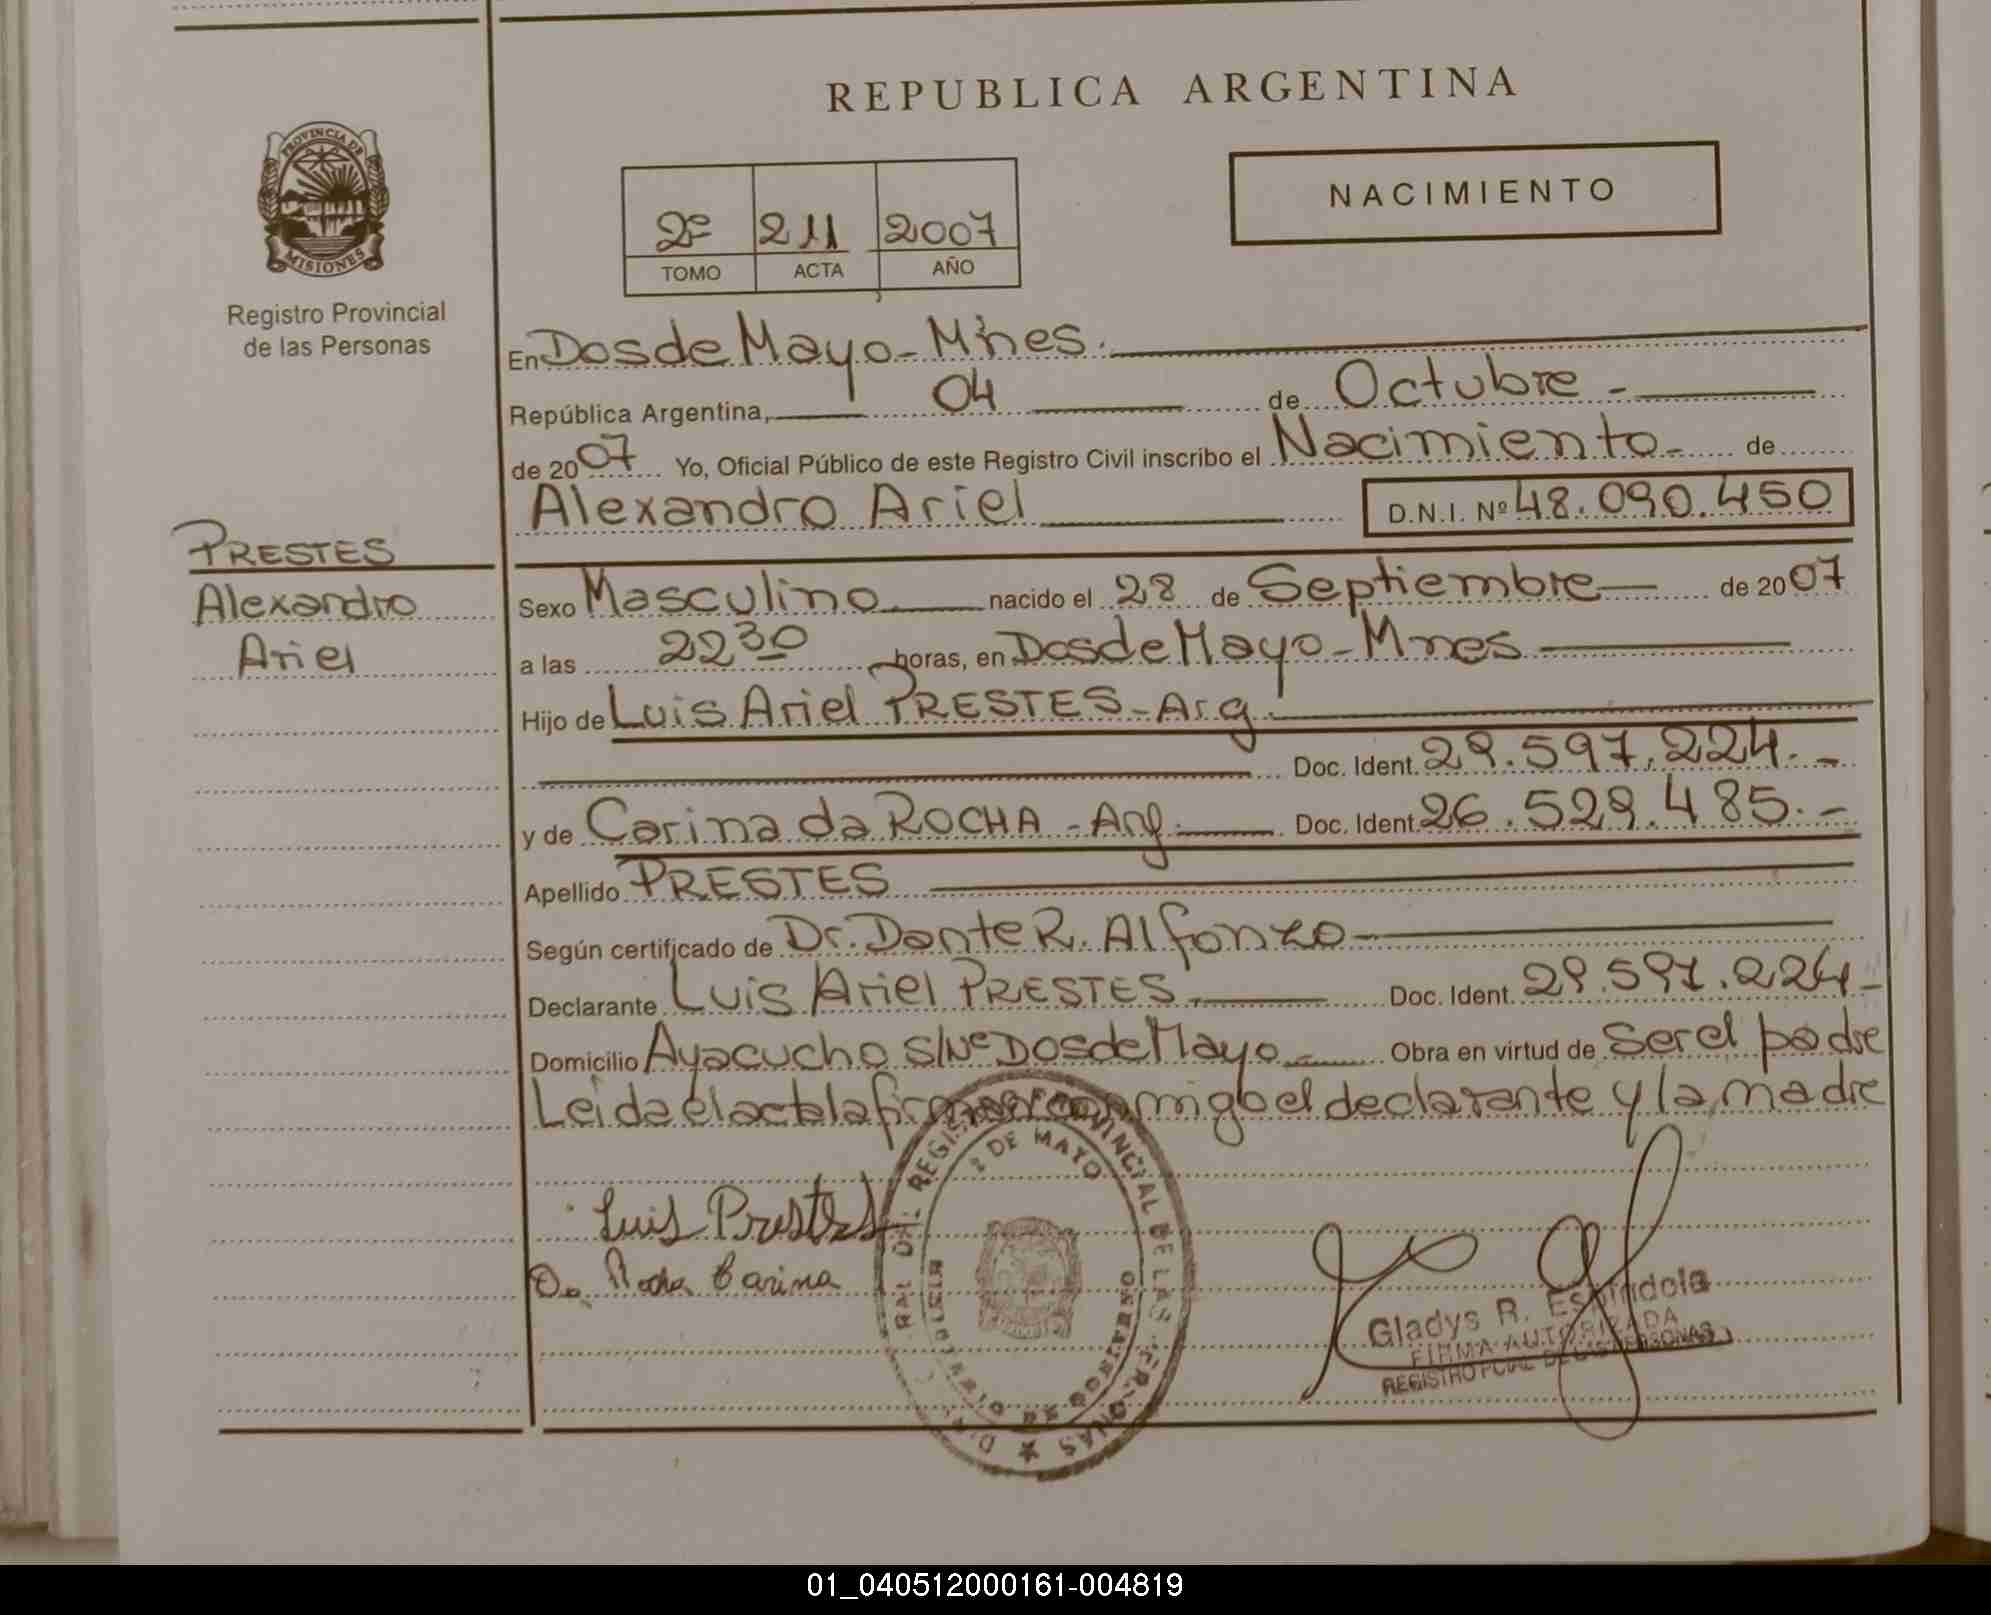 REPUBLICA ARGENTINA
PROVINCIA DE
MISIONES
Registro Provincial
de las Personas
NACIMIENTO
2º 211 2007
TOMO ACTA AÑO
En Dos de Mayo - Mnes.
República Argentina, 04 de Octubre -
de 2007 Yo, Oficial Público de este Registro Civil inscribo el Nacimiento - de
Alexandro Ariel D.N.I. Nº 48.090.450
PRESTES
Alexandro
Ariel
Sexo Masculino nacido el 28 de Septiembre de 2007
a las 22 30 horas, en Dos de Mayo - Mnes
Hijo de Luis Ariel PRESTES - Arg.
Doc. Ident. 29.597.224.-
y de Carina da ROCHA - Arg. Doc. Ident. 26.529.485.-
Apellido PRESTES
Según certificado de Dr. Dante R. Alfonzo
Declarante Luis Ariel PRESTES Doc. Ident. 29.597.224-
Domicilio Ayacucho S/Nº Dos de Mayo - Obra en virtud de Ser el padre
Leida el acta la firman conmigo el declarante y la madre
Luis Prestes
Da Rocha Carina
REGISTRO PROVINCIAL DE LAS PERSONAS
2 DE MAYO
Gladys R. Espindola
FIRMA AUTORIZADA
REGISTRO PCIAL DE LAS PERSONAS
01_040512000161-004819